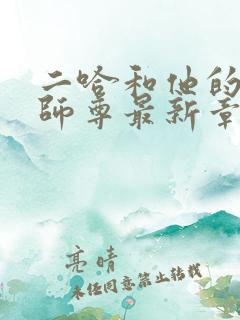 二哈和他的
師尊最新章
亮晴
未经同意禁止转载